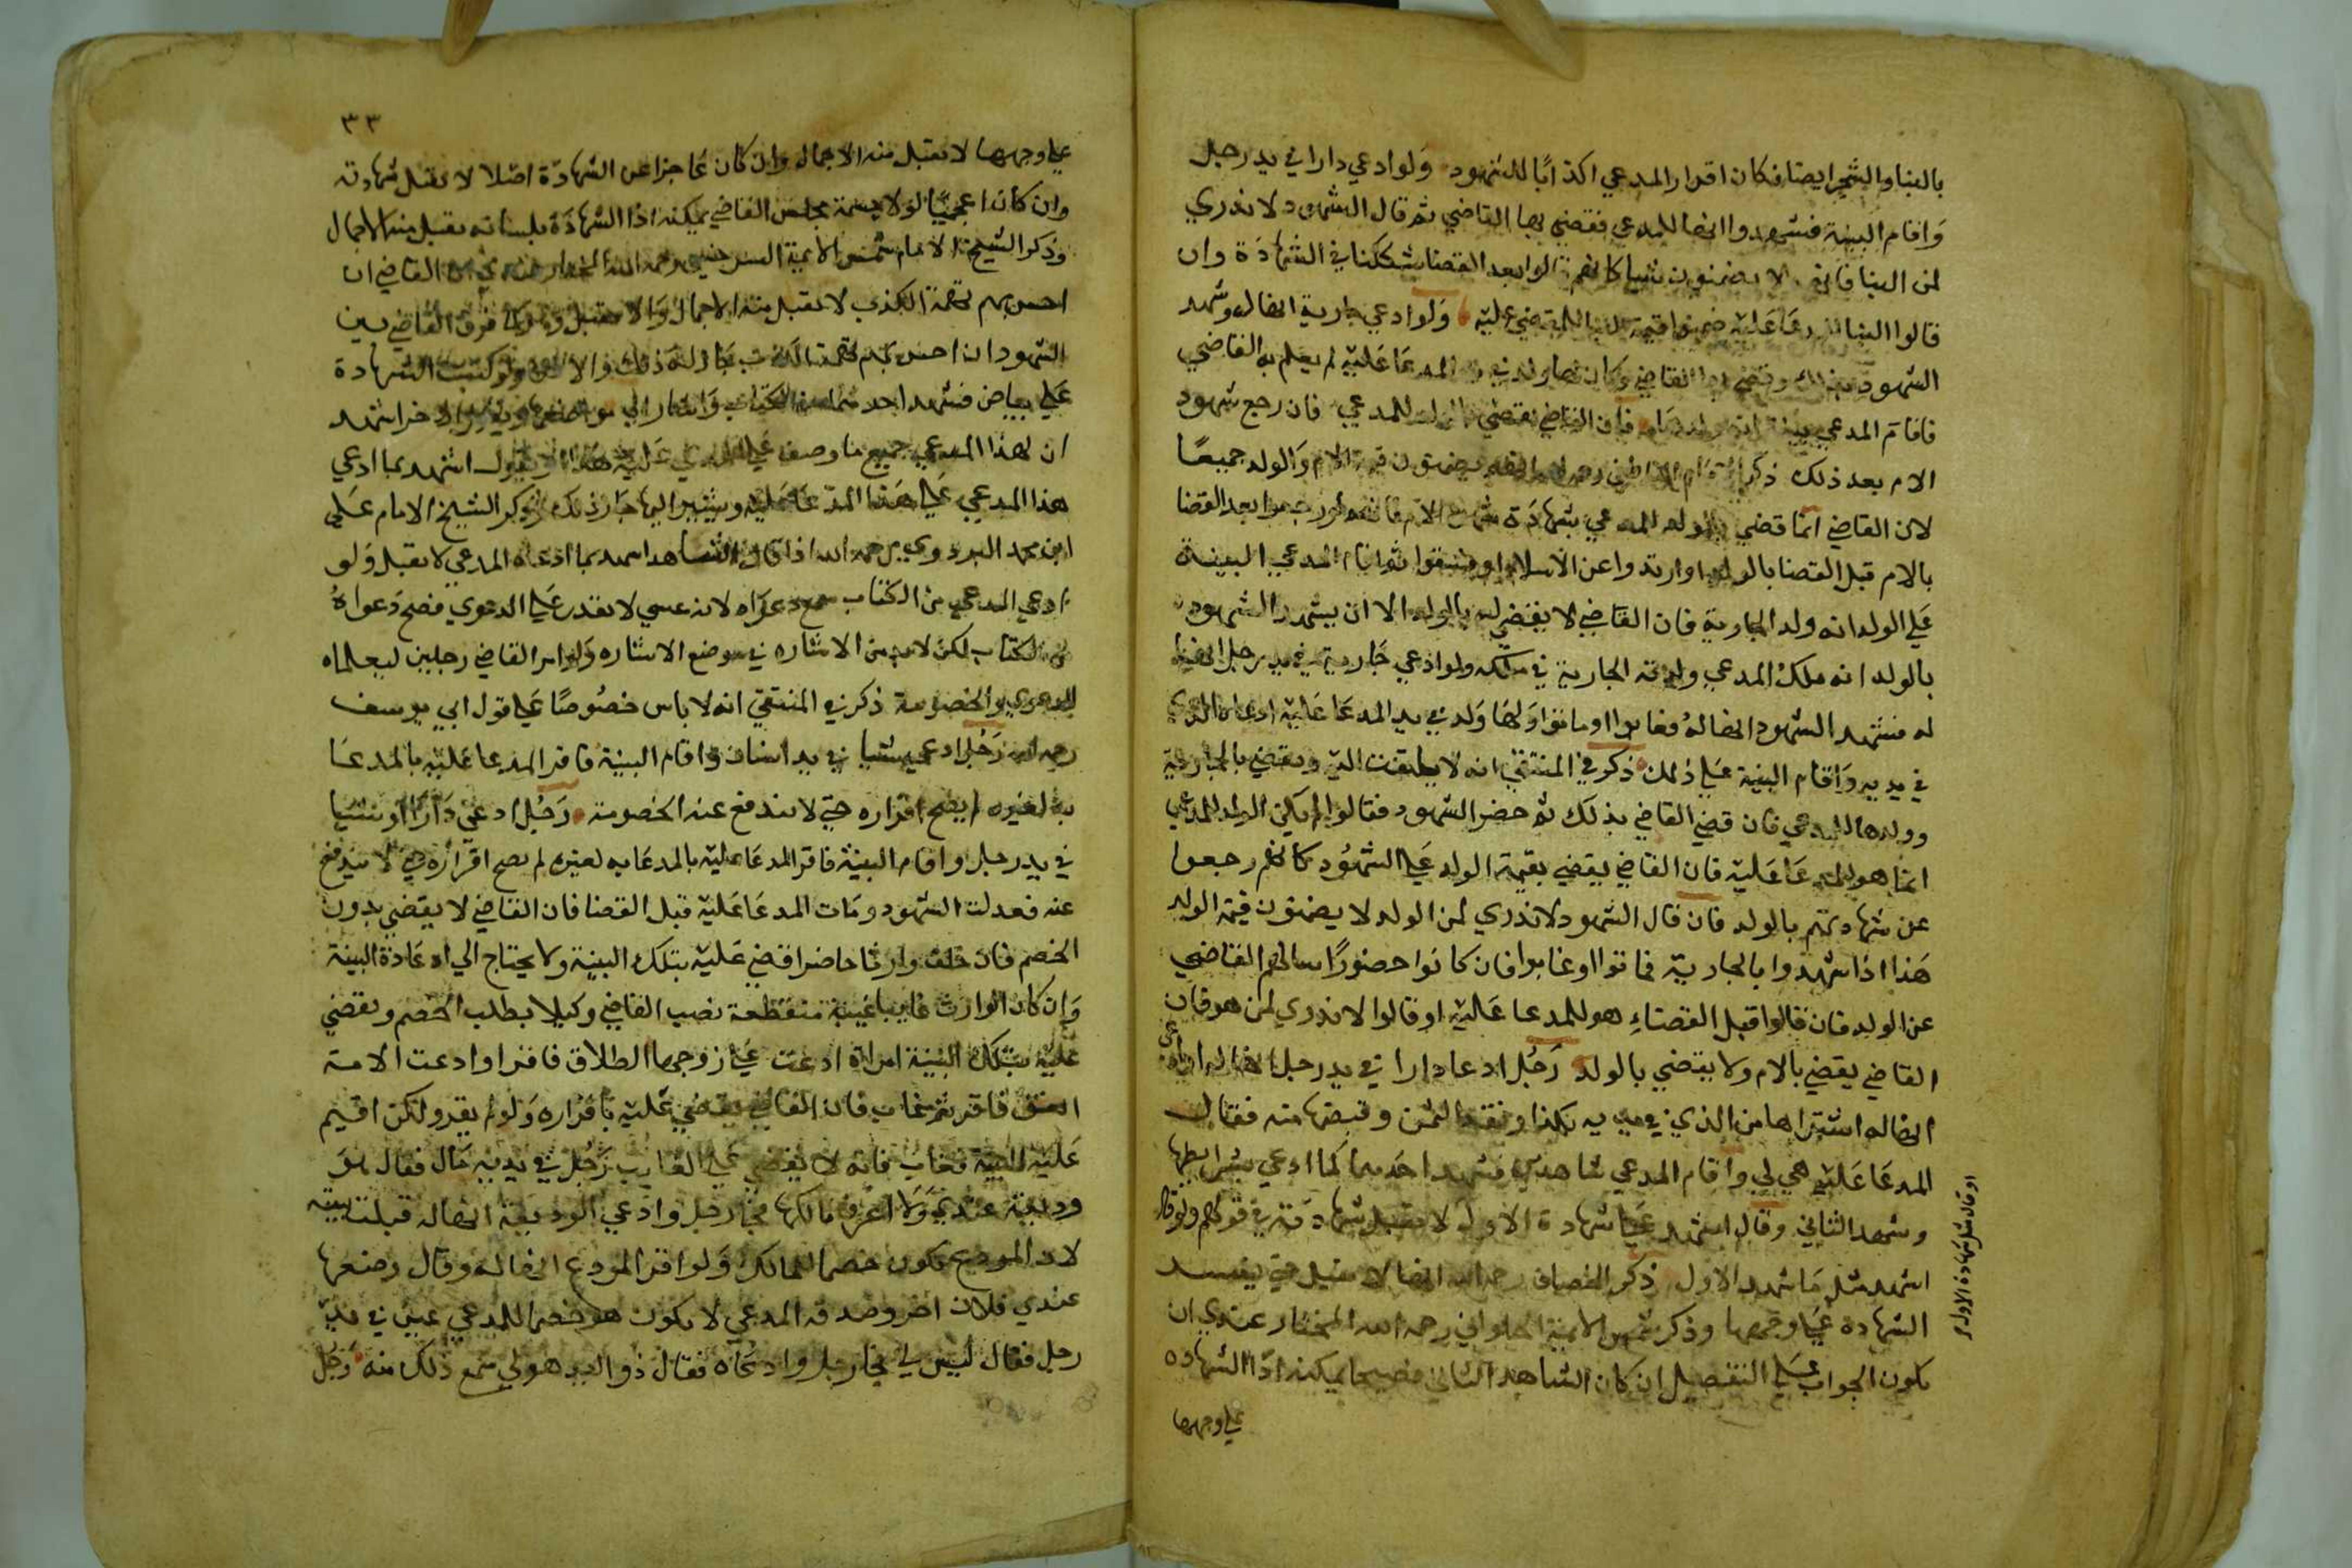 بالبنا والشجر ايضا فكان اقرار المدعي اكذابا للشهود ولو ادعي دارا في يد رجل
واقام البينة فشهدوا انها للمدعي فقضي بها القاضي ثم قال الشهود لا ندري
لمن البنا فانهم لا يضمنون شيا كانهم قالوا بعد القضا شككنا في الشهادة وان
قالوا البنا للمدعا عليه ضمنوا قيمة البنا للمقضي عليه ولو ادعي جارية انها له وشهد
الشهود بذلك وقضي بها القاضي وكان لها ولد في يد المدعا عليه لم يعلم به القاضي
فاقام المدعي بينة انه ولد فان القاضي يقضي بالولد للمدعي فان رجع شهود
الام بعد ذلك ذكر يضمنون قيمة الام والولد جميعا
لان القاضي انما قضي بالولد للمدعي بشهادة شهود الام فانهم لو رجعوا بعد القضا
بالام قبل القضا بالولد او ارتدوا عن الاسلام او فسقوا ثم اقام المدعي البينة
علي الولد انه ولد الجارية فان القاضي لا يقضي له بالولد الا ان يشهد الشهود
بالولد انه ملك المدعي ولدته الجارية في ملكه ولو ادعي جارية في يد رجل انها
له فشهد الشهود انها له فغابوا او ماتوا ولها ولد في يد المدعا عليه ادعاه الذي
في يديه واقام البينة علي ذلك ذكر في المنتقي انه لا يلتفت اليه ويقضي بالجارية
وولدها للمدعي فان قضي القاضي بذلك ثم حضر الشهود فقالوا لم يكن الولد للمدعي
انما هو للمدعا عليه فان القاضي يقضي بقيمة الولد علي الشهود كانهم رجعوا
عن شهادتهم بالولد فان قال الشهود لا ندري لمن الولد لا يضمنون قيمة الولد
هذا اذا شهدوا بالجارية فماتوا او غابوا فان كانوا حضورا سالهم القاضي
عن الولد فان قالوا قبل القضاء هو للمدعا عليه او قالوا لا ندري لمن هو فان
القاضي يقضي بالام ولا يقضي بالولد رجل ادعا دارا في يد رجل انها له
انها له اشتراها من الذي في يديه بكذا ونقد الثمن وقبضها منه فقال
المدعا عليه هي لي واقام المدعي شاهدين فشهد احدهما كما ادعي بشرايطها
وشهد الثاني وقال اشهد علي شهادة الاول لا يقبل شهادته في قولهم ولو قال
اشهد مثل ما شهد الاول ذكر الخصاف رحمه الله انها لا تقبل حتي يفسر
الشهادة علي وجهها وذكر شمس الايمة الحلواني رحمه الله المختار عندي ان
يكون الجواب علي التفصيل ان كان الشاهد الثاني فصيحا يمكنه ادا الشهاده
علي وجهها
او قال مثل شهادة الاول
٣٣
علي وجهها لا تقبل منه الاجمال وان كان عاجزا عن الشهادة اصلا لا تقبل شهادته
وان كان اعجميا مجلس القاضي يمكنه ادا الشهادة بلسانه يقبل منه الاجمال
وذكر الشيخ الامام شمس الايمة السرخسي رحمه الله المختار القاضي ان
احس بهم تهمة الكذب لا تقبل منه الاجمال والا تقبل فرق القاضي بين
الشهود ان احس بهم تهمة ذلك والا ولو كتبت الشهادة
علي بياض فشهد احدهما من الكتاب واشار الي اخر اشهد
ان لهذا المدعي جميع ما وصف عليه هذا او يقول اشهد بما ادعي
هذا المدعي علي هذا المدعا عليه ويشير اليها جاز ذلك وذكر الشيخ الامام علي
ابن محمد البزدوي رحمه الله اذا قال الشاهد اشهد بما ادعاه المدعي لا تقبل ولو
ادعي المدعي من الكتاب سمع دعواه لانه عسي لا يقدر علي الدعوي فصح دعواه
من الكتاب لكن لا بد من الاشاره في موضع الاشاره ولو امر القاضي رجلين ليعلماه
الدعوي والخصومة ذكر في المنتقي انه لا باس خصوصا علي قول ابي يوسف
رحمه الله رجل ادعي شيا في يد انسان واقام البينة فاقر المدعا عليه بالمدعا
به لغيره لم يصح اقراره حتي لا تندفع عنه الخصومة رجل ادعي دارا او شيا
في يد رجل واقام البينة فاقر المدعا عليه بالمدعا به لغيره لم يصح اقراره حتي لا تندفع
عنه فعدلت الشهود ومات المدعا عليه قبل القضا فان القاضي لا يقضي بدون
الخصم فان خلف وارثا حاضرا قضي عليه بتلك البينة ولا يحتاج الي اعادة البينة
وان كان الوارث غايبا غيبة منقطعة نصب القاضي وكيلا بطلب الخصم ويقضي
عليه بتلك البينة امراة ادعت علي زوجها الطلاق فاقر او ادعت الامة
العتق فاقر ثم غاب فان القاضي يقضي عليه باقراره ولو لم يقر ولكن اقيم
عليه البينة فغاب فانه لا يقضي علي الغايب رجل في يديه مال فقال هو
وديعة عندي ولا اعرف مالكها فجا رجل وادعي الوديعة انها له قبلت بينته
لان المودع يكون خصما للمالك ولو اقر المودع انها له وقال وضعها
عندي فلان اخر وصدقه المدعي لا يكون هو خصما للمدعي عين في يد
رجل فقال ليس لي فجا رجل وادعاه فقال ذو اليد هو لي سمع ذلك منه رجل